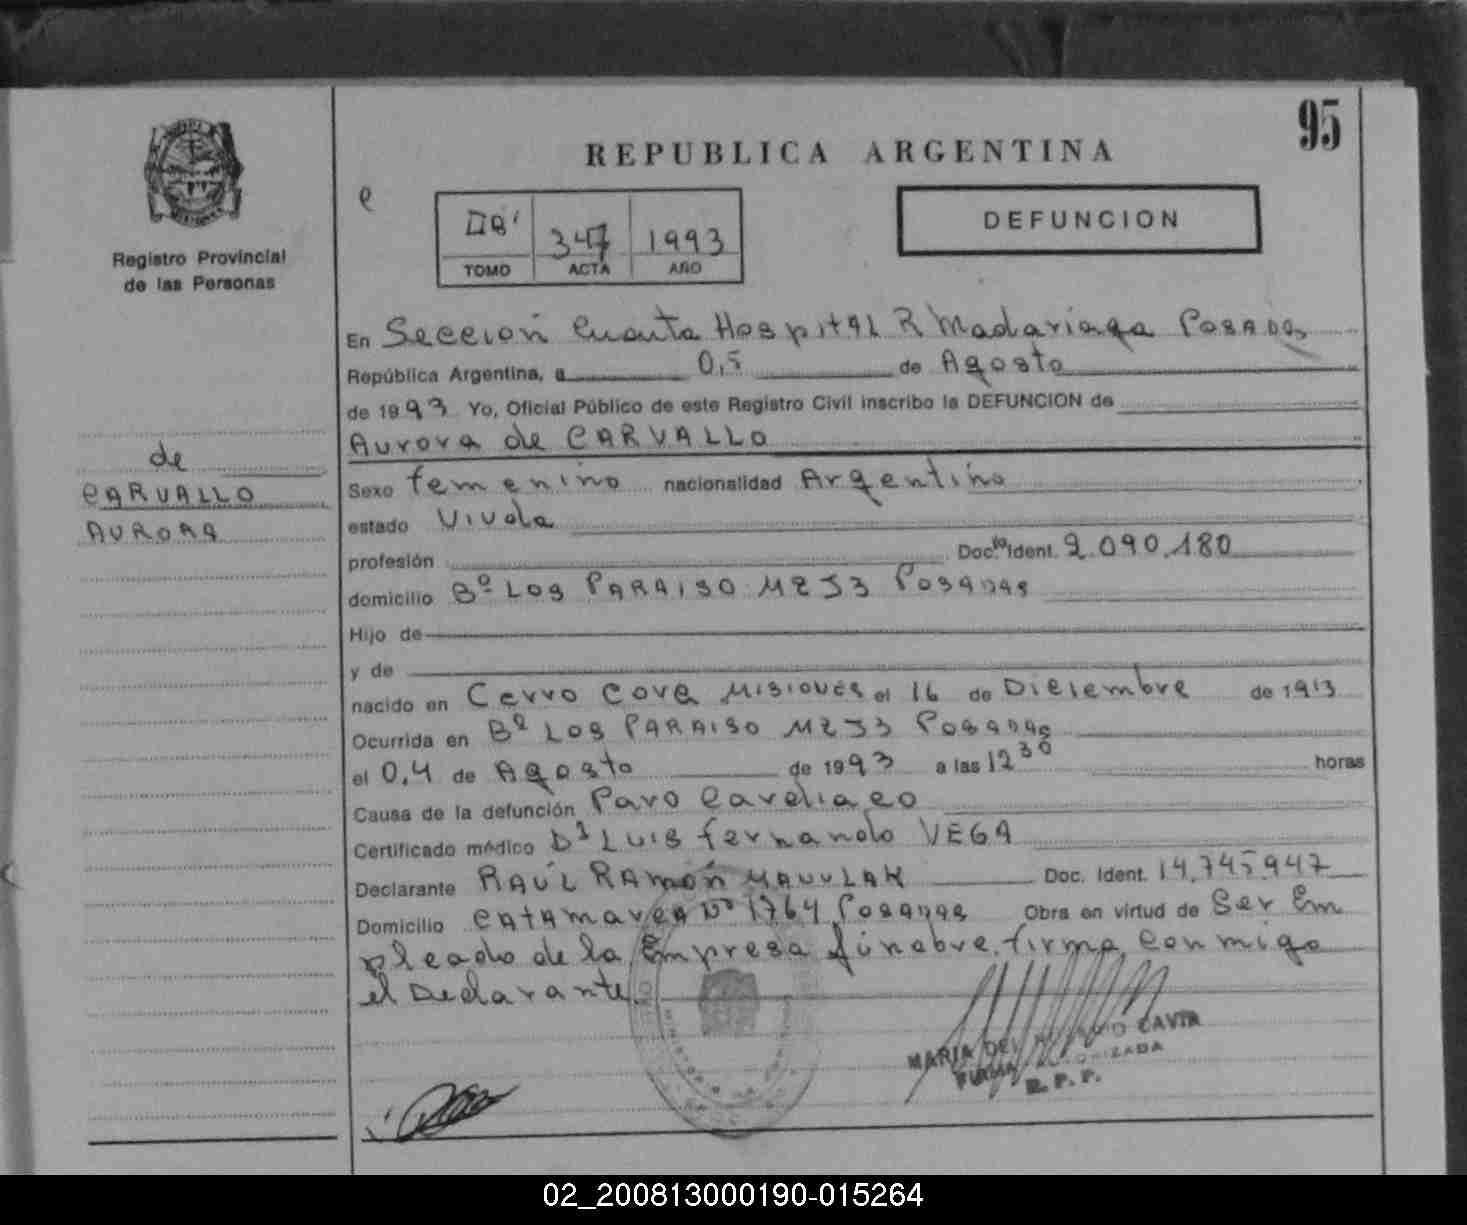 95
REPUBLICA ARGENTINA
DEFUNCION
347 1993
TOMO ACTA AÑO
Registro Provincial
de las Personas
de
CARVALLO
AURORA
En Seccion Cuarta Hospital R Madariaga Posadas
República Argentina, a 05 de Agosto
de 1993 Yo, Oficial Público de este Registro Civil inscribo la DEFUNCION de
Aurora de CARVALLO
Sexo femenino nacionalidad Argentina
estado Viuda
profesión Doc. Ident. 2.090.180
domicilio Bº Los PARAISO MZ 53 Posadas
Hijo de
y de
nacido en Cerro Cora Misiones el 16 de Diciembre de 1913
Ocurrida en Bº Los PARAISO MZ 53 Posadas
el 04 de Agosto de 1993 a las 12 30 horas
Causa de la defunción Paro Cardiaco
Certificado médico Dr Luis fernando VEGA
Declarante RAÚL RAmón Doc. Ident. 14.745.947
Domicilio CAtAmarca Nº 1764 Posadas Obra en virtud de Ser Em
pleado de la Empresa fúnebre. firma conmigo
el Declarante
MARIA DEL CAVIA
FIRMA AUTORIZADA
R. P. P.
02_200813000190-015264